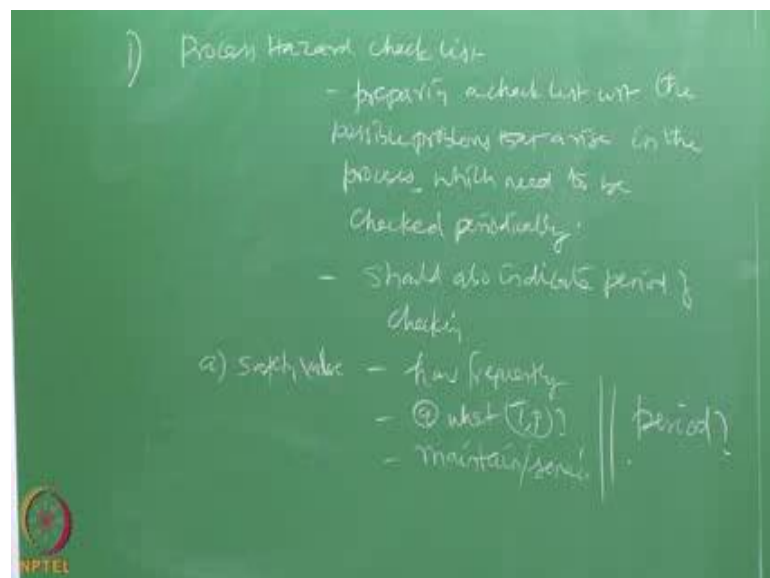 1) Process Hazard check list
- preparing a check list with the
possible problems that arise in the
process, which need to be
checked periodically.
- Should also indicate period of
checking
a) Safety valve - how frequently
- @ what (T, P)?
- maintain/servi. period?
NPTEL